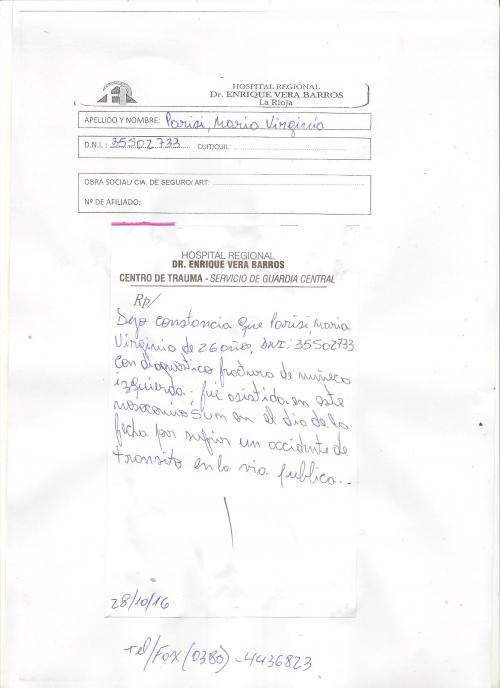 HOSPITAL REGIONAL
Dr. ENRIQUE VERA BARROS
La Rioja
APELLIDO Y NOMBRE: Parisi, Maria Virginia
D.N.I.: 35502733 CUIT/CUIL:
OBRA SOCIAL/ CIA. DE SEGURO/ ART:
Nº DE AFILIADO:
HOSPITAL REGIONAL
DR. ENRIQUE VERA BARROS
CENTRO DE TRAUMA - SERVICIO DE GUARDIA CENTRAL
Rp/
Dejo constancia que Parisi, Maria
Virginia de 26 años, DNI: 35502733
con diagnostico fractura de muñeca
izquierda; fue asistida en este
nosocomio en el dia de la
fecha por sufrir un accidente de
transito en la via publica.
28/10/16
Tel/Fax (0380) -4436823